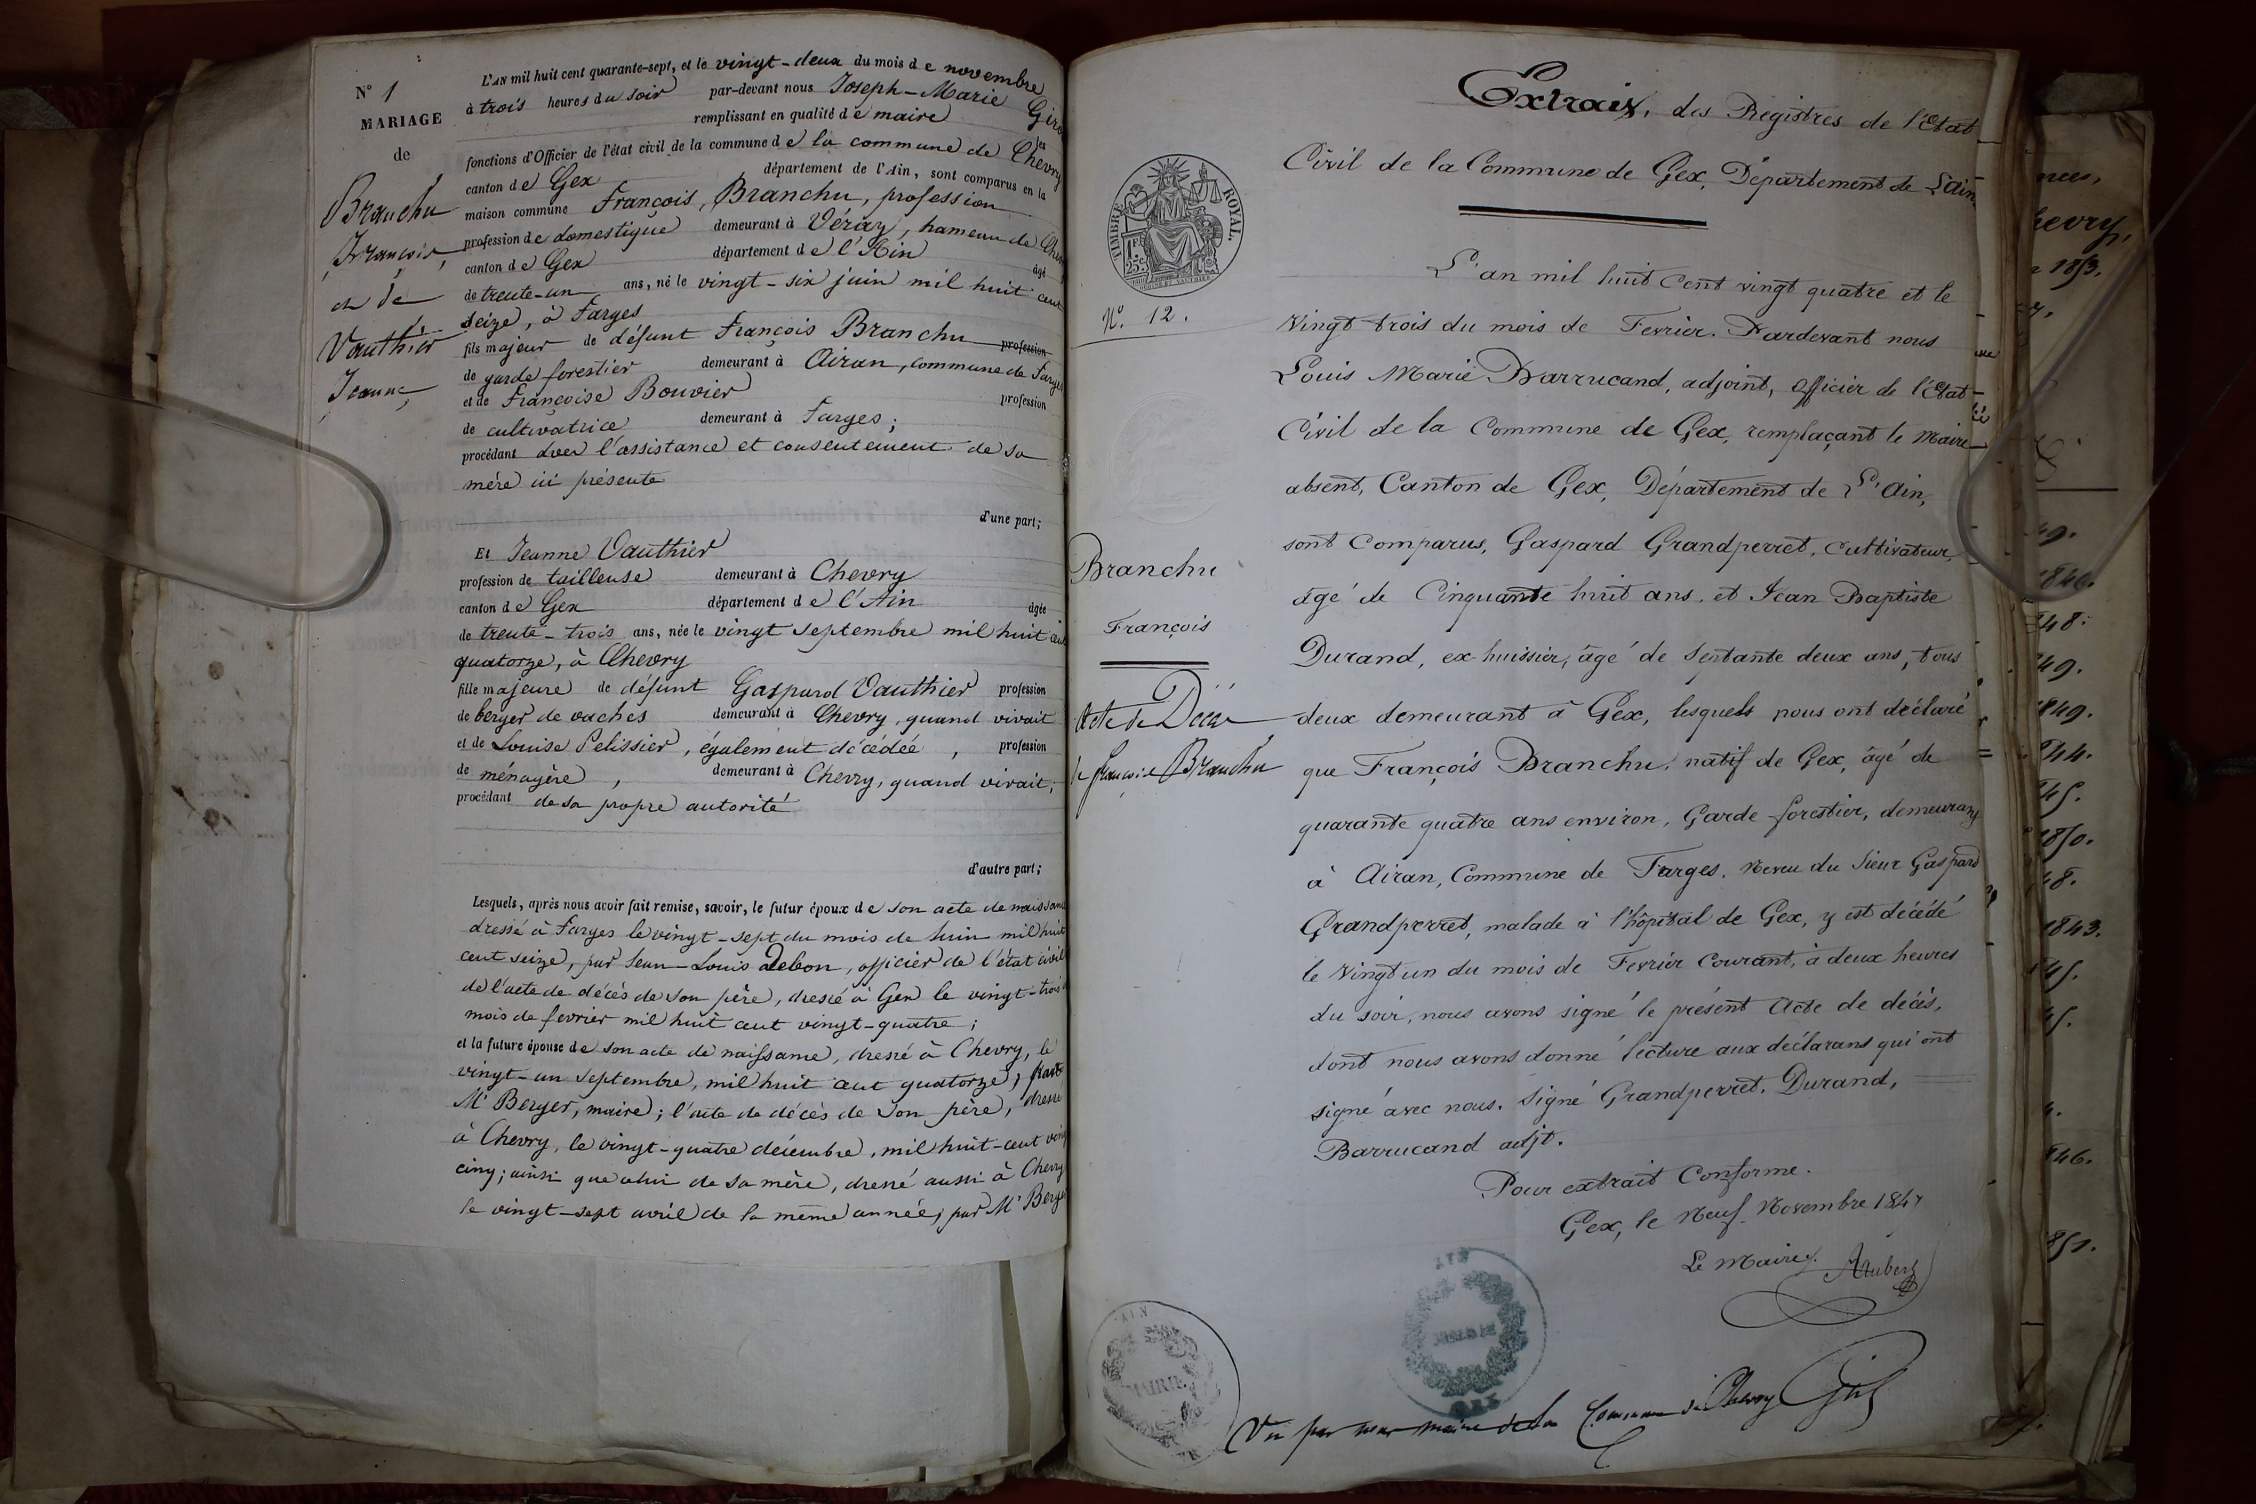 N° 1
MARIAGE
de
Branchu
François,
et de
Vauthier
Jeanne,
L'AN mil huit cent quarante-sept, et le vingt-deux du mois de novembre
à trois heures du soir par-devant nous Joseph-Marie
remplissant en qualité de maire les
fonctions d'Officier de l'état civil de la commune de la commune de Chevry
canton de Gex département de l'Ain, sont comparus en la
maison commune François, Branchu, profession
profession de domestique demeurant à Véraz, hameau de
canton de Gex département de l'Ain âgé
de trente-un ans, né le vingt-six juin mil huit cent
seize, à Farges
fils majeur de défunt François Branchu profession
de garde forestier demeurant à Airan, commune de Farges
et de Françoise Bouvier profession
de cultivatrice demeurant à Farges;
procédant avec l'assistance et consentement de sa
mère ici présente
d'une part;
Et Jeanne Vauthier
profession de tailleuse demeurant à Chevry
canton de Gex département de l'Ain âgée
de trente-trois ans, née le vingt septembre mil huit cent
quatorze, à Chevry
fille majeure de défunt Gaspard Vauthier profession
de berger de vaches demeurant à Chevry, quand vivait
et de Louise Pelissier, également décédée, profession
de ménagère, demeurant à Chevry, quand vivait;
procédant de sa propre autorité
d'autre part;
Lesquels, après nous avoir fait remise, savoir, le futur époux de son acte de naissance
dressé à Farges le vingt-sept du mois de Juin mil huit
cent seize, par Jean-Louis Debon, officier de l'état civil
de l'acte de décès de son père, dressé à Gex le vingt-trois
mois de fevrier mil huit cent vingt-quatre;
et la future épouse de son acte de naissance, dressé à Chevry, le
vingt-un septembre, mil huit cent quatorze, par
Mr Berger, maire; l'acte de décès de son père, dressé
à Chevry, le vingt-quatre décembre, mil huit-cent vingt
cinq; ainsi que celui de sa mère, dressé aussi à Chevry
le vingt-sept avril de la même année, par Mr Berger
Extrait, des Registres de l'Etat
Civil de la Commune de Gex, Département de L'ain.
TIMBRE ROYAL.
1F 25c.
N°. 12.
Branchu
François
Acte de Décès
de François Branchu
L'an mil huit cent vingt quatre et le
Vingt trois du mois de Fevrier. Pardevant nous
Louis Marie Barrucand, adjoint, officier de l'Etat
Civil de la Commune de Gex, remplaçant le Maire
absent, Canton de Gex, Département de L'ain,
sont Comparus, Gaspard Grandperret, cultivateur,
âgé de Cinquante huit ans, et Jean Baptiste
Durand, ex-huissier, âgé de septante deux ans, tous
deux demeurant à Gex, lesquels nous ont déclaré
que François Branchu, natif de Gex, âgé de
quarante quatre ans environ, Garde forestier, demeurant
à Airan, Commune de Farges, Neveu du Sieur Gaspard
Grandperret, malade à l'hôpital de Gex, y est décédé
le Vingt un du mois de Fevrier Courant, à deux heures
du soir, nous avons signé le présent Acte de décès,
dont nous avons donné lecture aux déclarans qui ont
signé avec nous. Signé Grandperret, Durand,
Barrucand adjt.
Pour extrait Conforme.
Gex, le Neuf Novembre 1847
Le Maire.
AIN
MAIRIE
GEX
AIN
MAIRIE
Vu par nous maire de la Commune de Chevry
1853.
1849.
1850.
1843.